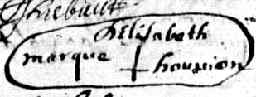 Thiebaut
Elisabeth
marque houpion